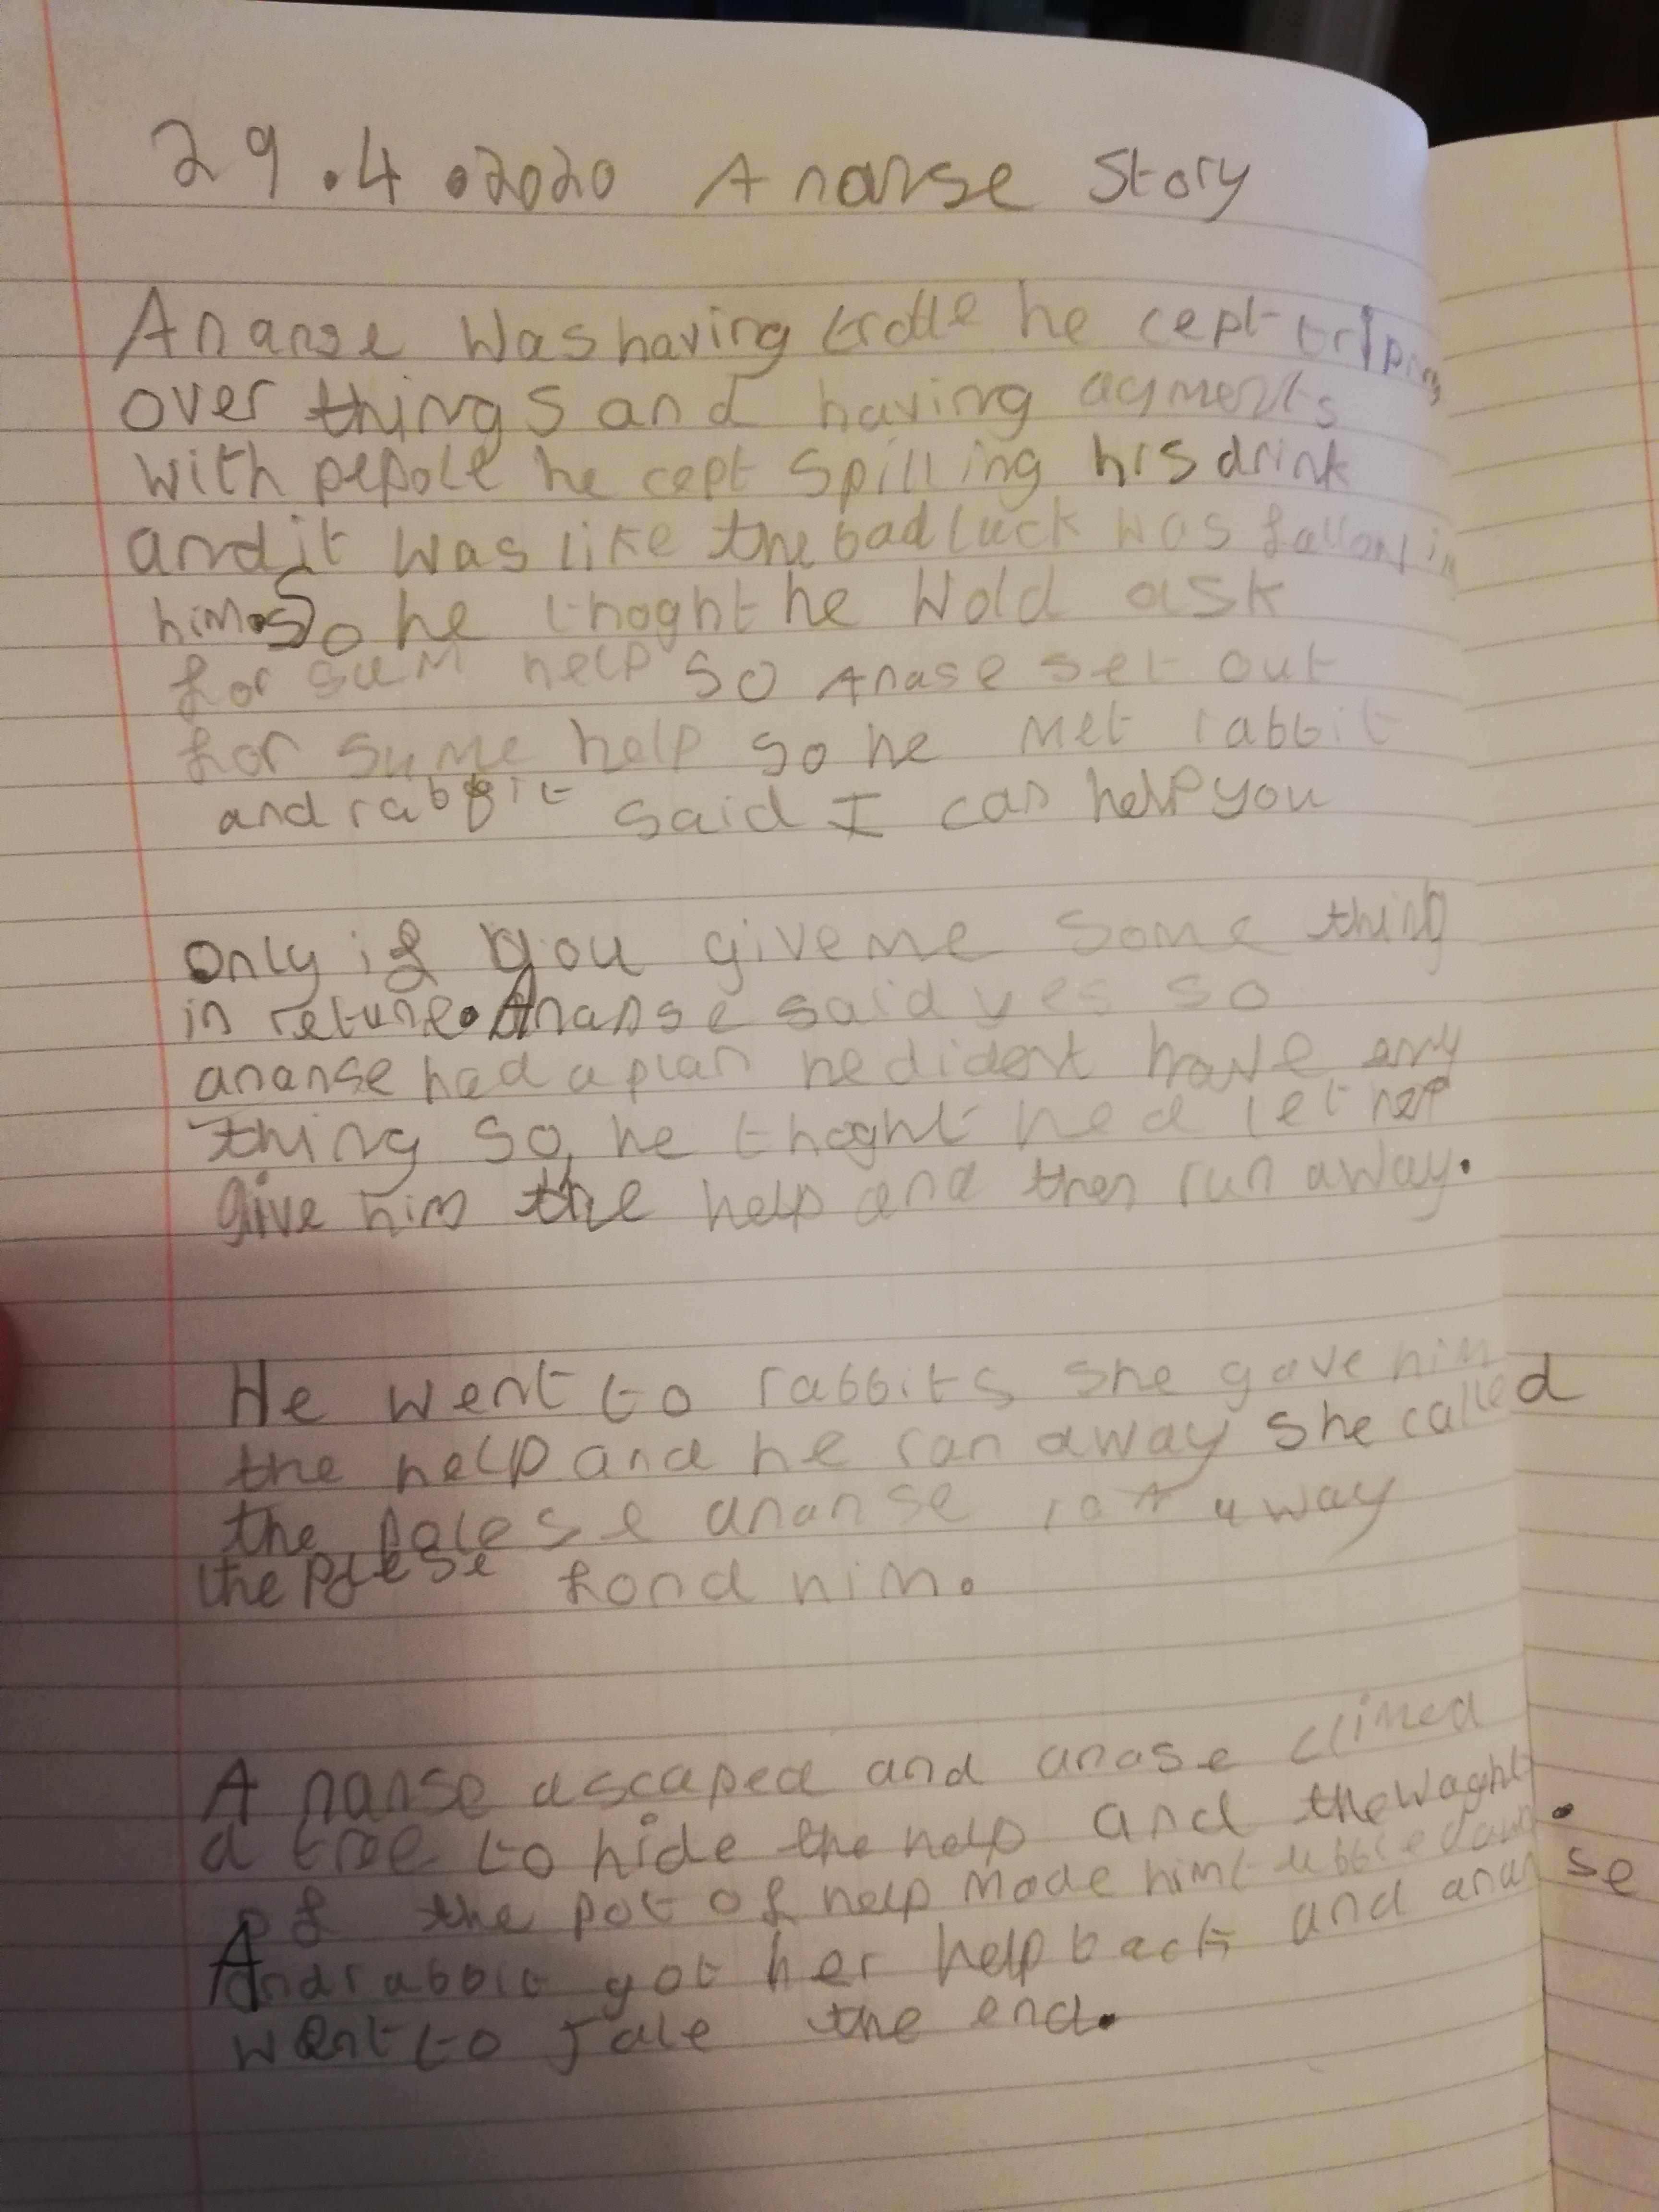 29.4.2020 Ananse Story
Ananse was having he cept
over things and having
with pepole he cept spilling his drink
and it was like the bad luck was
him. So he thoght he wold ask
for sum help so Anase set out
for sume help so he met rabbit
and rabbit said I can help you
only if you give me some thing
in returne. Ananse said yes so
ananse had a plan he dident have eny
thing so, he thoght he d let her
give him the help and then run away.
He went to rabbits she gave him
the help and he ran away she called
the polese ananse ran away
the polese fond him.
Ananse ascaped and anase climed
a tree to hide the help and the waght
of the pot of help made him down.
And rabbit got her help back and ananse
went to Jale the end.